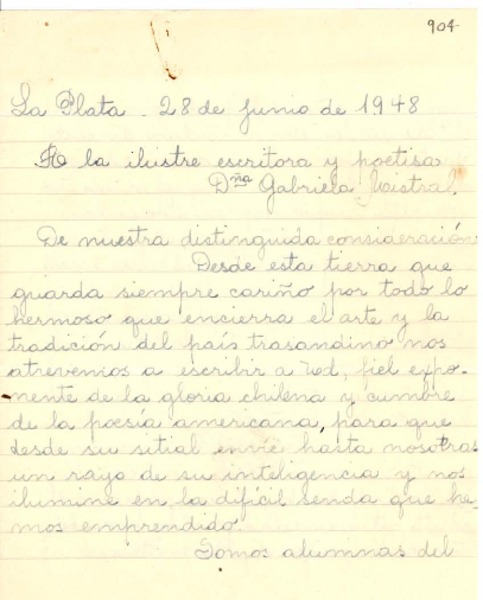 904
La Plata - 28 de junio de 1948
A la ilustre escritora y poetisa
Dña Gabriela Mistral.
De nuestra distinguida consideración
Desde esta tierra que
guarda siempre cariño por todo lo
hermoso que encierra el arte y la
tradición del país trasandino nos
atrevemos a escribir a Ud, fiel expo-
nente de la gloria chilena y cumbre
de la poesía americana, para que
desde su sitial envíe hasta nosotras
un rayo de su inteligencia y nos
ilumine en la difícil senda que he-
mos emprendido.
Somos alumnas del